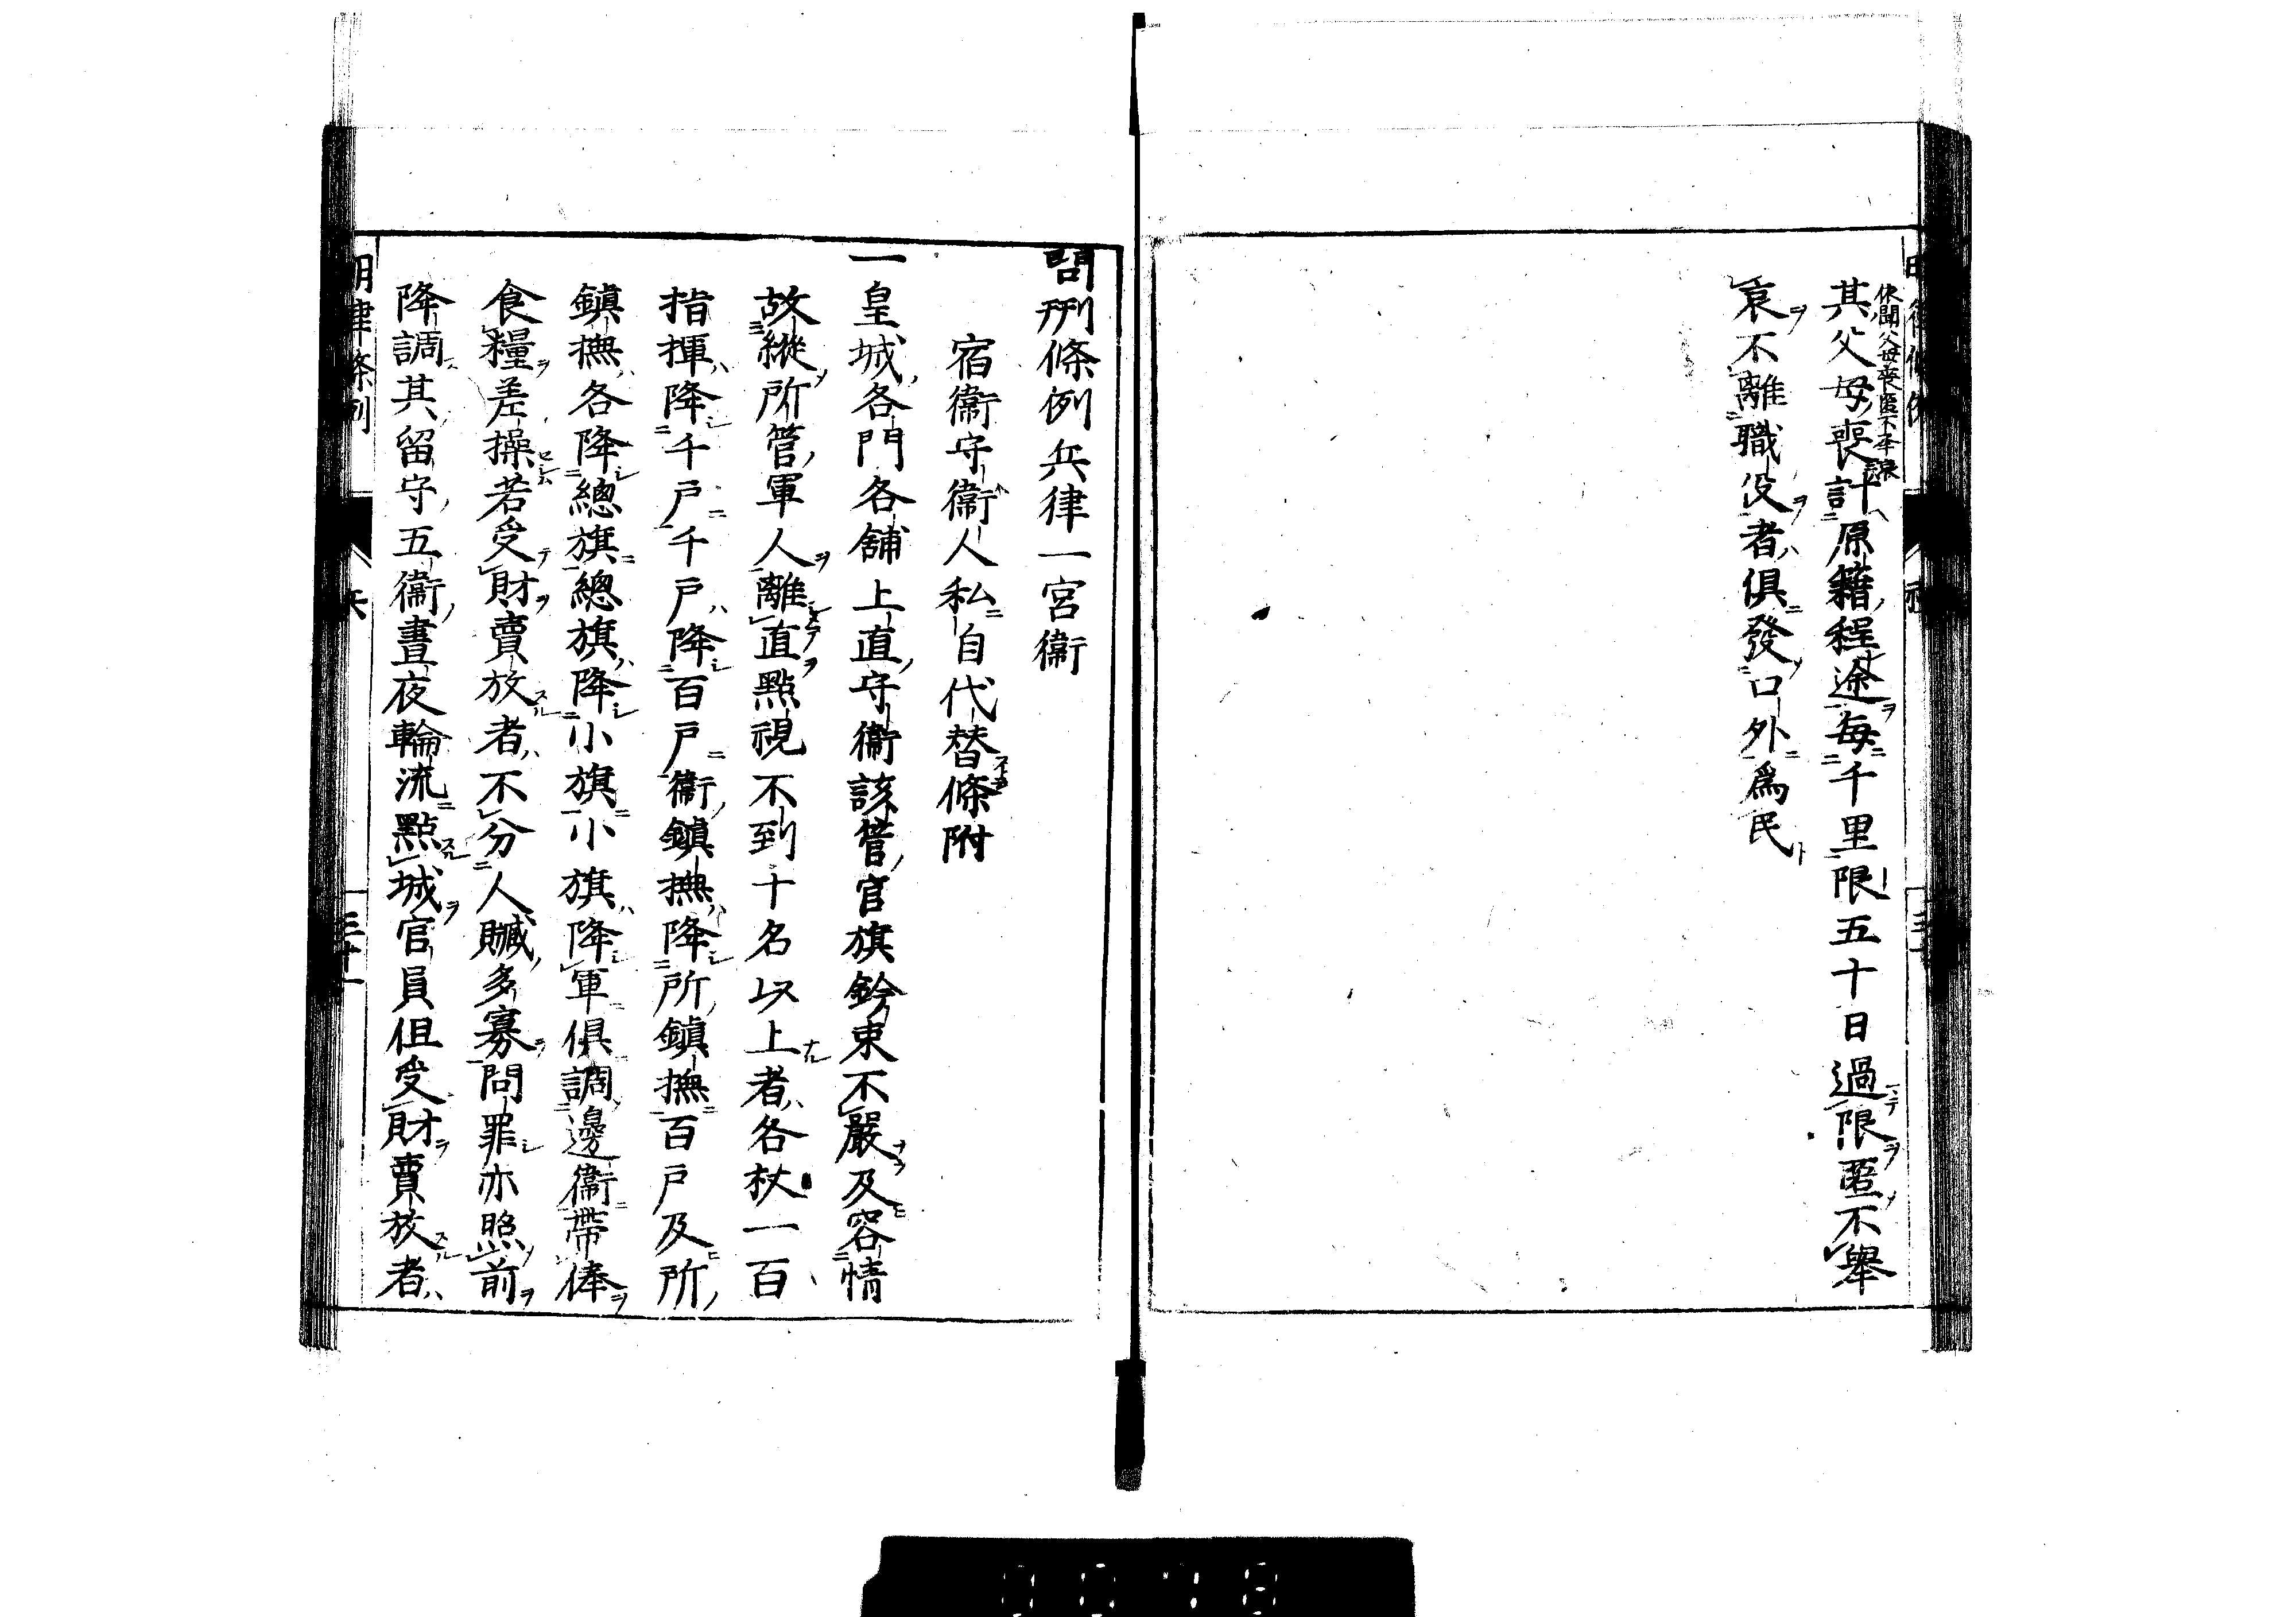 其父母喪計原籍程途每千里限五十日過限匿不舉
哀不離職役者俱發口外爲民
問刑條例兵律一宮衞
宿衞守衞人私自代替條附
一皇城各門各舖上直守衞該管官旗鈐束不嚴及容情
故縱所管軍人離直點視不到十名以上者各杖一百
指揮降千戶千戶降百戶衞鎮撫降所鎮撫百戶及所
鎮撫各降總旗總旗降小旗小旗降軍俱調邊衞帶俸
食糧差操若受財賣放者不分人贓多寡問罪亦照前
降調其留守五衞晝夜輪流點城官員但受財賣放者